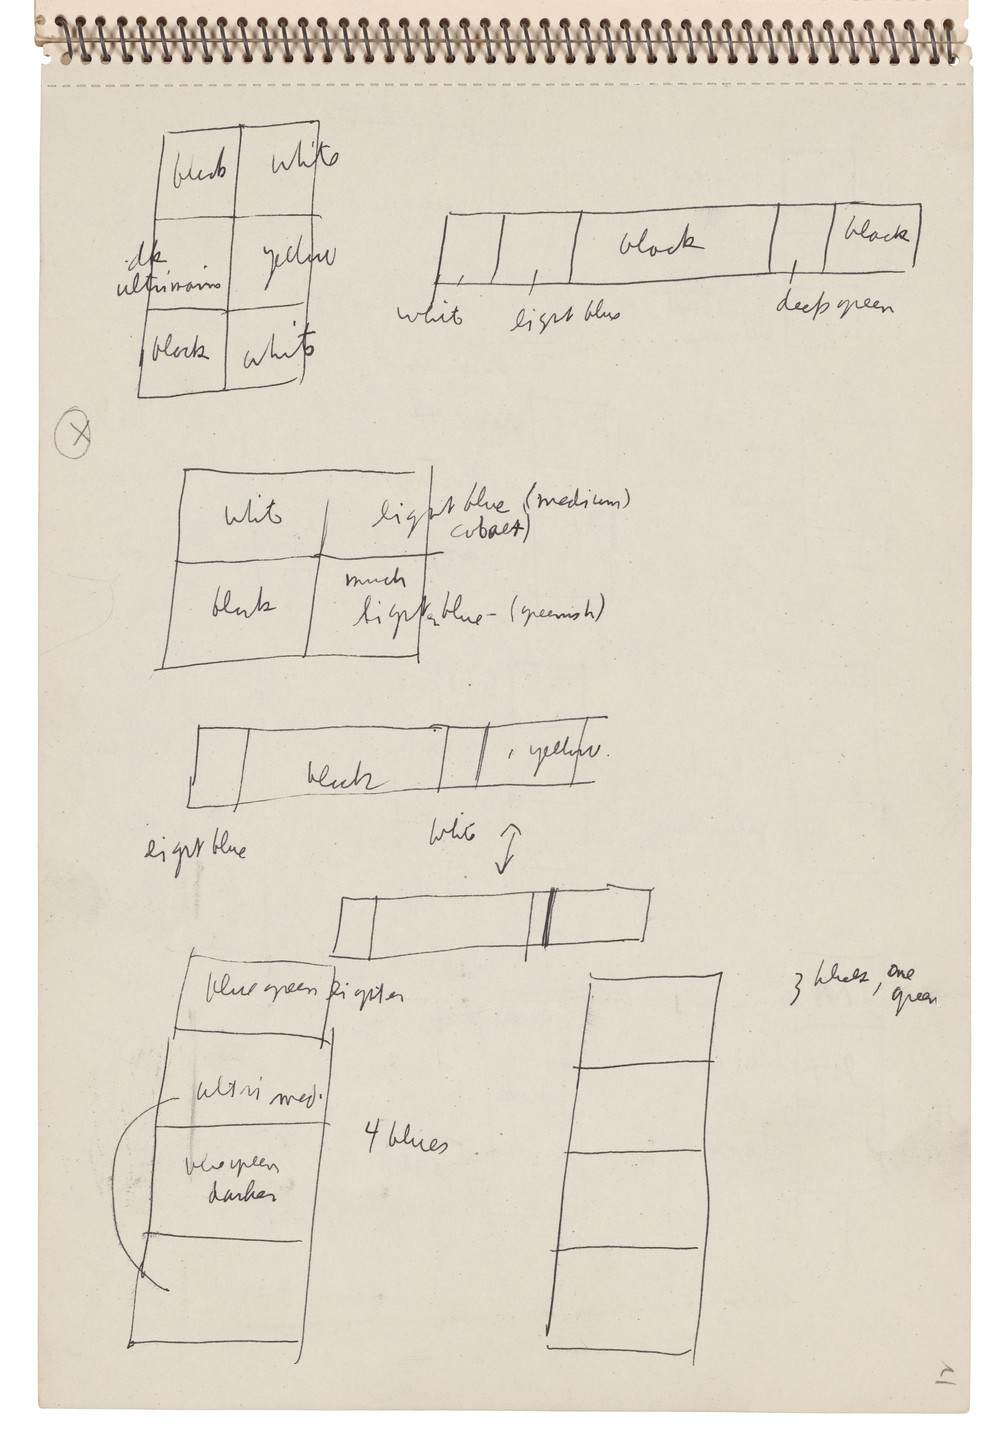 black white
dk yellow
ultrimarine
black white
black black
white light blue deep green
X
white light blue (medium)
cobalt)
black much
light blue - (greenish)
black yellow.
light blue white
blue green lighter
3 blues, one
green
ultri med.
4 blues
blue green
darker